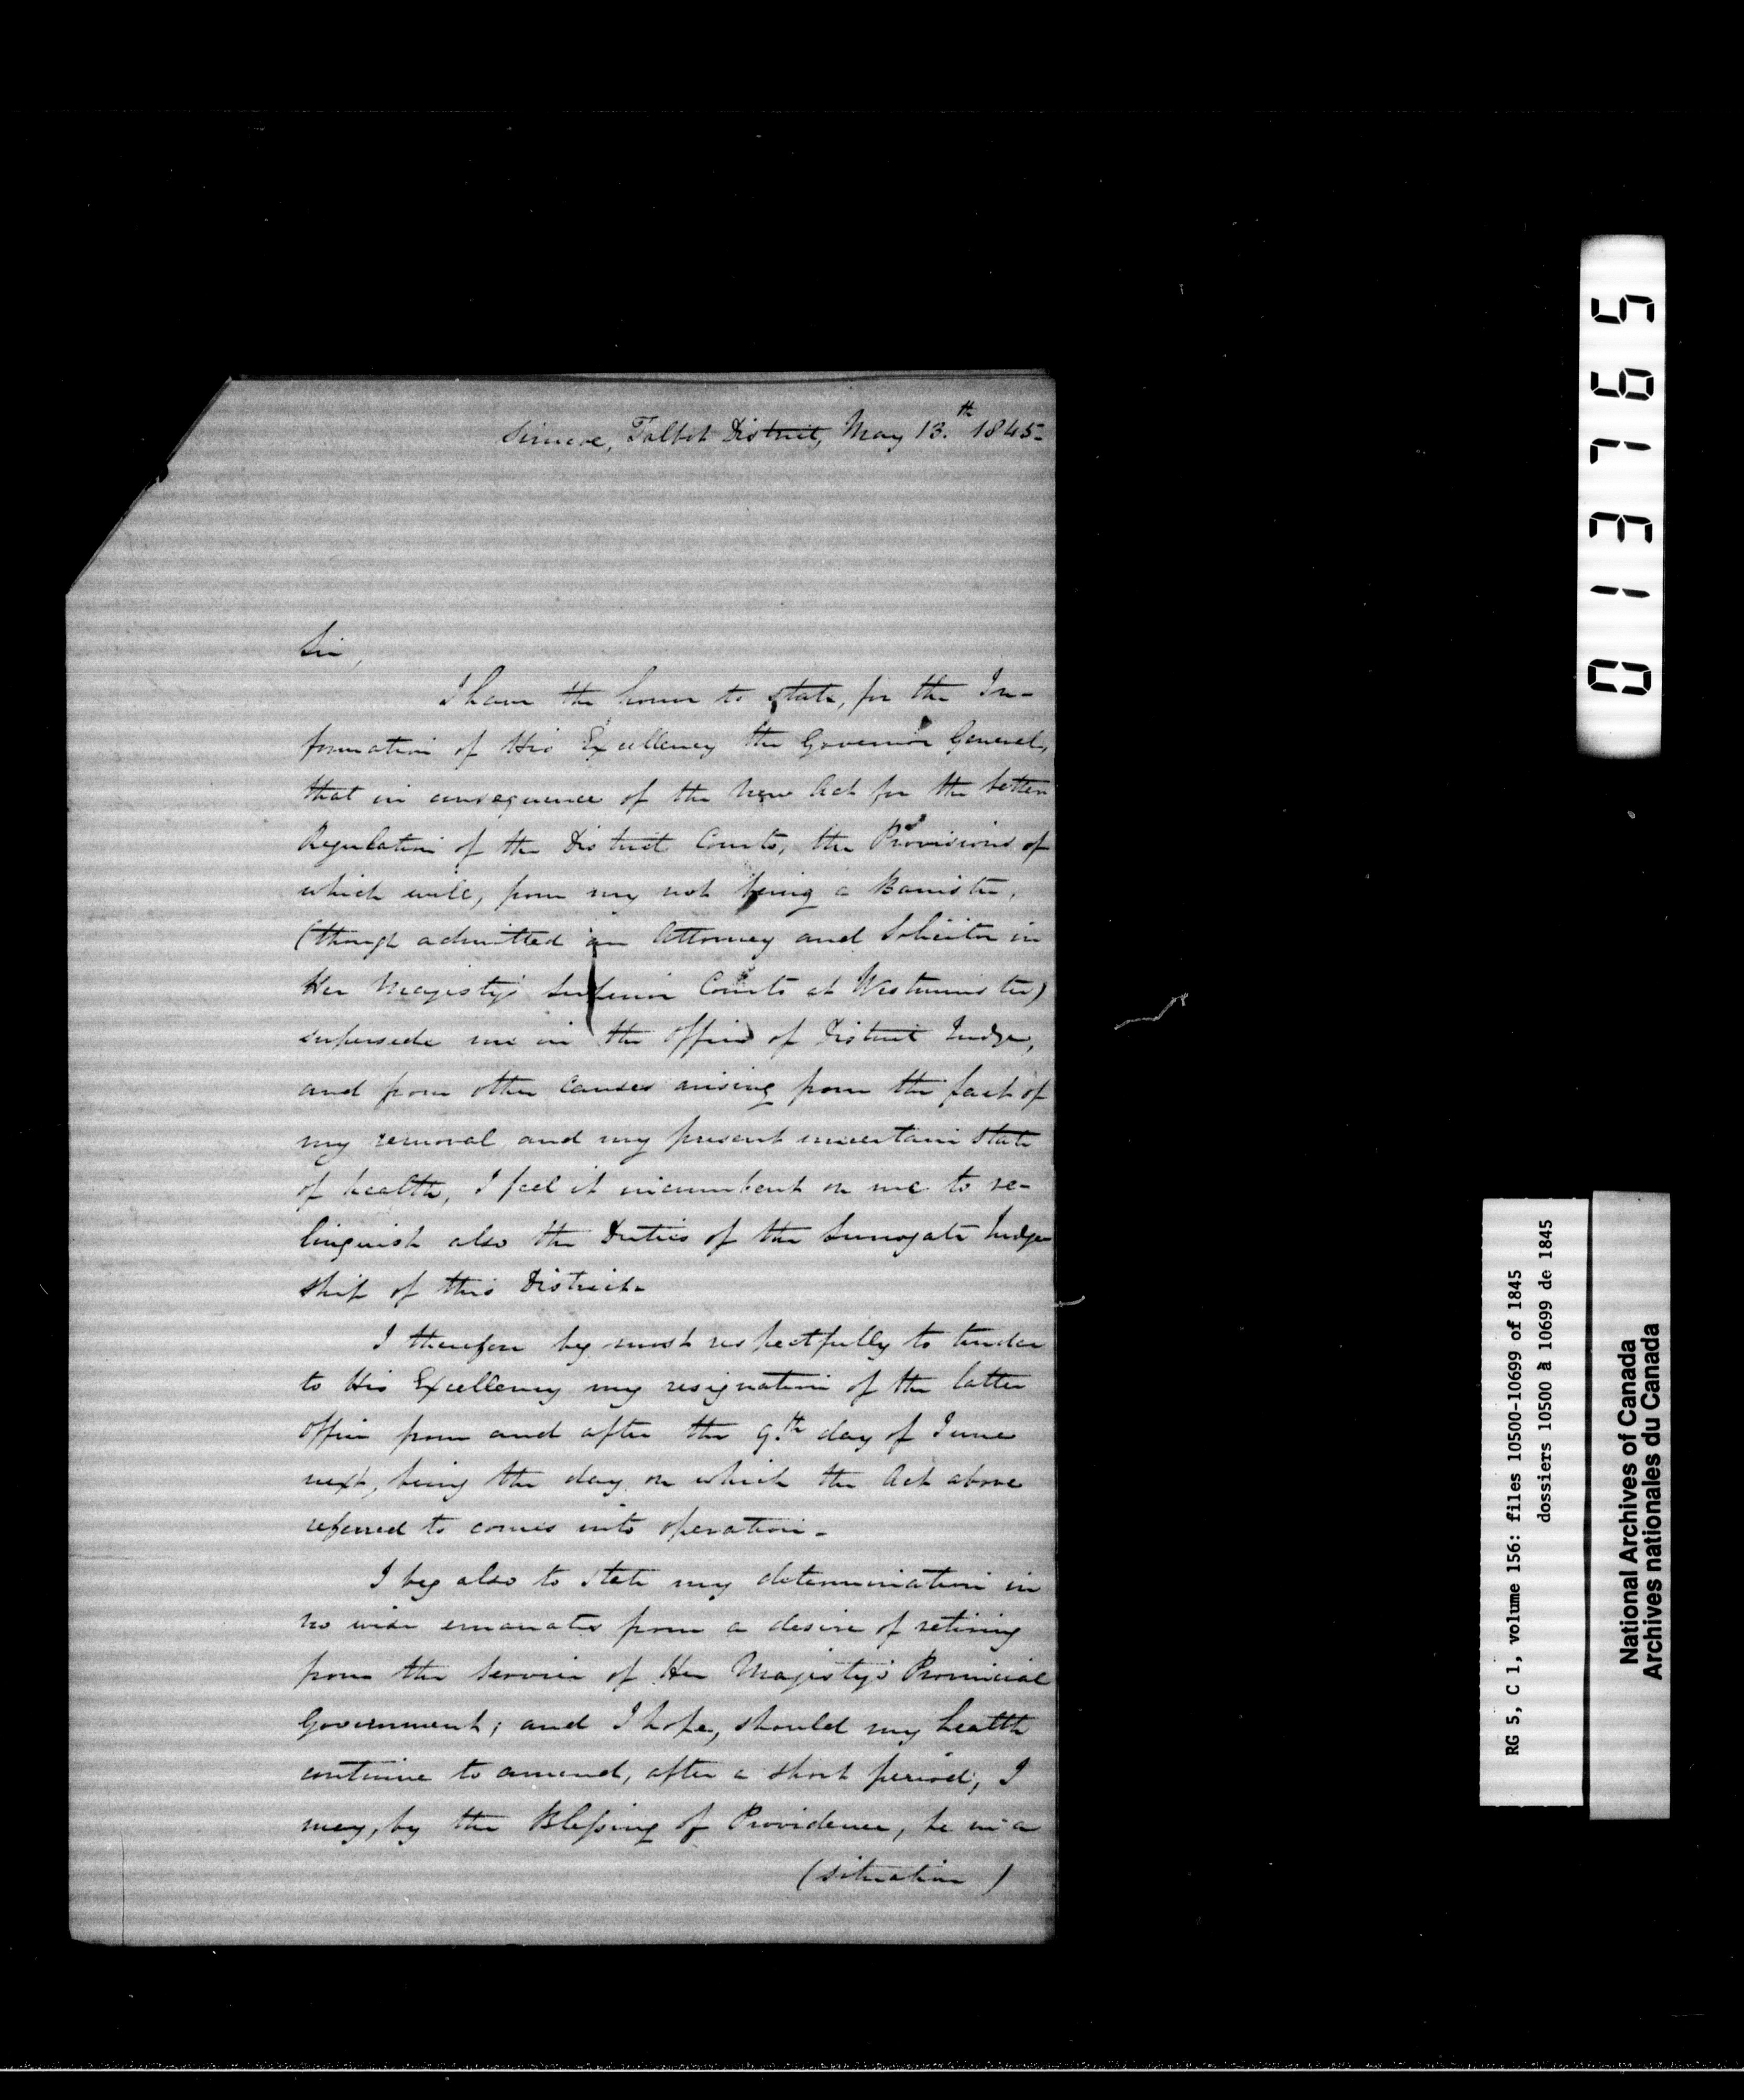 Simcoe, Talbot District, May 13.th 1845-
Sir,
I have the honor to state, for the In-
formation of His Excellency the Governor General,
that in consequence of the New Act for the better
Regulation of the District Courts, the Provisions of
which will, from my not being a Barrister,
(though admitted an Attorney and Solicitor in
Her Majesty's Superior Courts at Westminster)
supersede me in the Office of District Judge,
and from other Causes arising from the fact of
my removal and my present uncertain state
of health, I feel it incumbent on me to re-
linguish also the Duties of the Surrogate Judge
ship of this District-
I therefore beg most respectfully to tender
to His Excellency my resignation of the latter
Office from and after the 9.th day of June
next, being the day on which the Act above
referred to comes into operation-
I beg also to state my determination in
no wise emanates from a desire of retiring
from the Service of Her Majesty's Provincial
Government; and I hope, should my health
continue to amend, after a short period, I
may, by the Blessing of Providence, be in a
(situation)
013765
RG 5, C 1, volume 156: files 10500-10699 of 1845
dossiers 10500 à 10699 de 1845
National Archives of Canada
Archives nationales du Canada